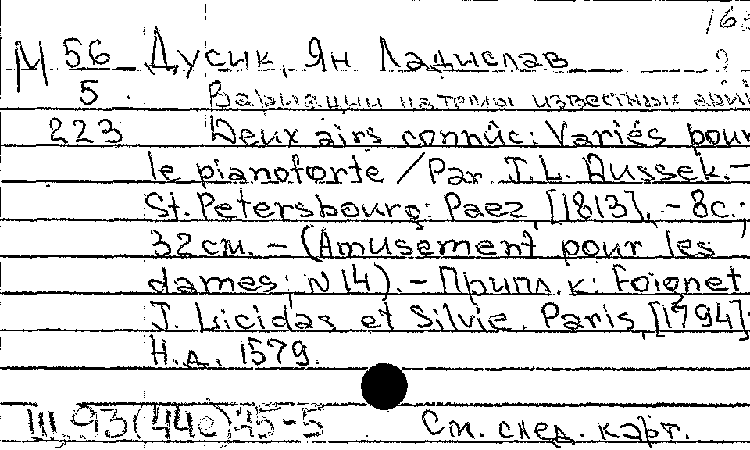 163
М 56 Дусик, Ян Ладислав
5
Вариации на темы известных арий
223 Deux airs connûc: Variés pour
le pianoforte / Par J. L. Dussek. –
St. Petersbourg: Paez, [1813]. – 8с.;
32см. – (Amusement pour les
dames; N 14). – Припл. к: Foignet
J. Licidas et Silvie. Paris, [1794];
Н.д. 1579.
Ш 93(44е)45-5 См. след. карт.